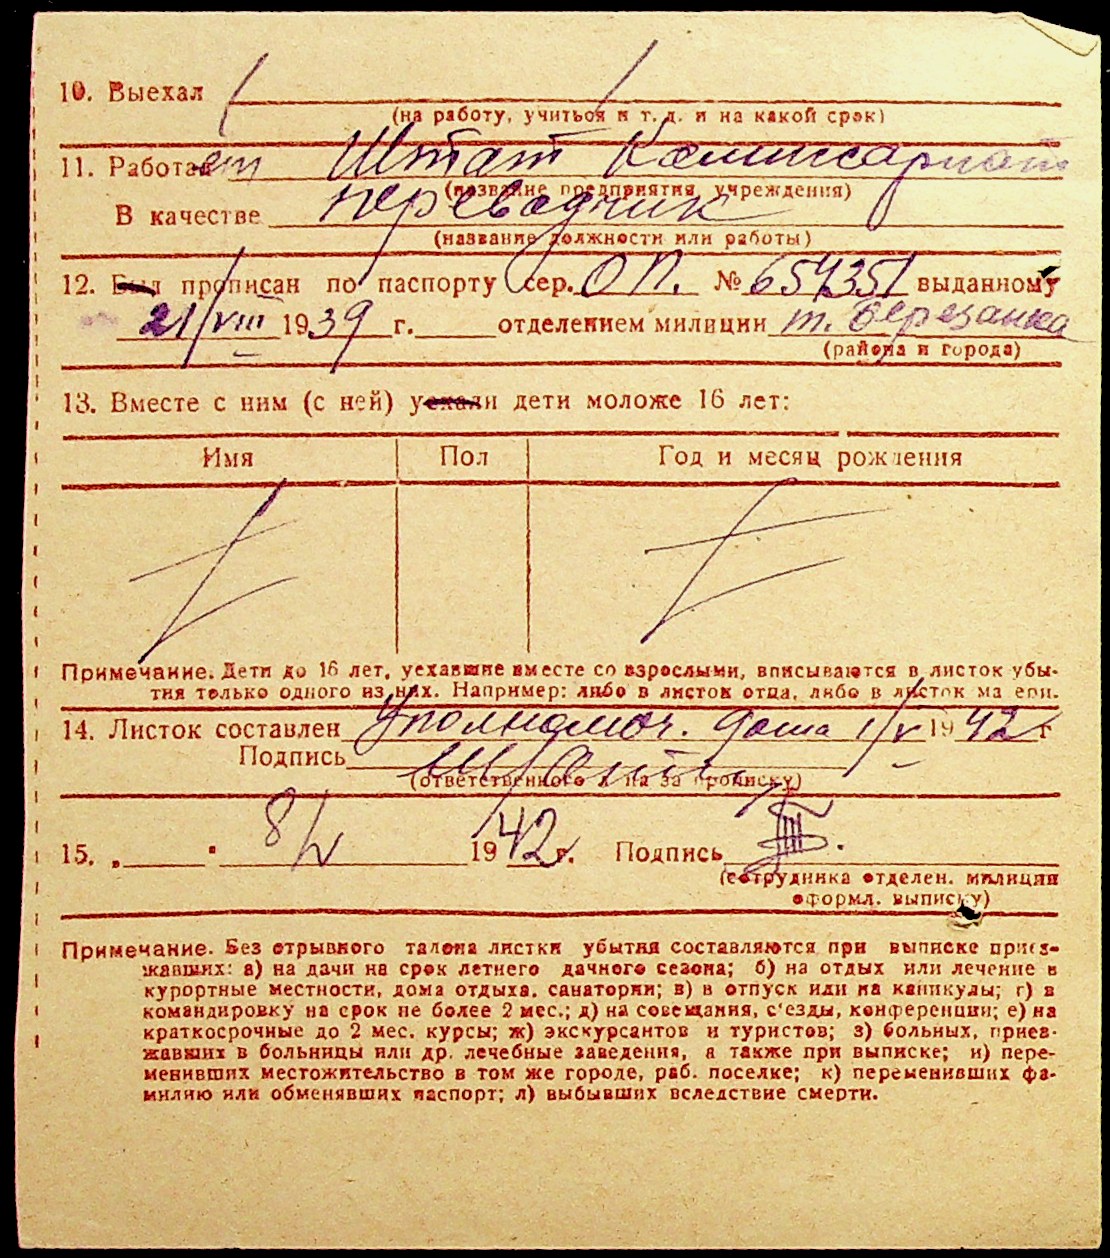 10. Выехал
(на работу, учиться и т. д. и на какой срок)
11. Работает Штат Комиссариат
(название предприятия, учреждения)
В качестве переводчик
(название должности или работы)
12. Был прописан по паспорту сер. ОП. № 654351 выданному
21/VIII 1939 г. отделением милиции т. Березанка
(района и города)
13. Вместе с ним (с ней) уехали дети моложе 16 лет:
Имя Пол Год и месяц рождения
Примечание. Дети до 16 лет, уехавшие вместе со взрослыми, вписываются в листок убы-
тия только одного из них. Например: либо в листок отца, либо в листок матери.
14. Листок составлен Уполномоч. дома 1/V 1942 г
Подпись
(ответственного л на за прописку)
15. „ " 8/V 1942 г. Подпись
(сотрудника отделен. милиции
оформл. выписку)
Примечание. Без отрывного талона листки убытия составляются при выписке приез-
жавших: а) на дачи на срок летнего дачного сезона; б) на отдых или лечение в
курортные местности, дома отдыха, санатории; в) в отпуск или на каникулы; г) в
командировку на срок не более 2 мес.; д) на совещания, с'езды, конференции; е) на
краткосрочные до 2 мес. курсы; ж) экскурсантов и туристов; з) больных, приез-
жавших в больницы или др. лечебные заведения, а также при выписке; и) пере-
менивших местожительство в том же городе, раб. поселке; к) переменивших фа-
милию или обменявших паспорт; л) выбывших вследствие смерти.